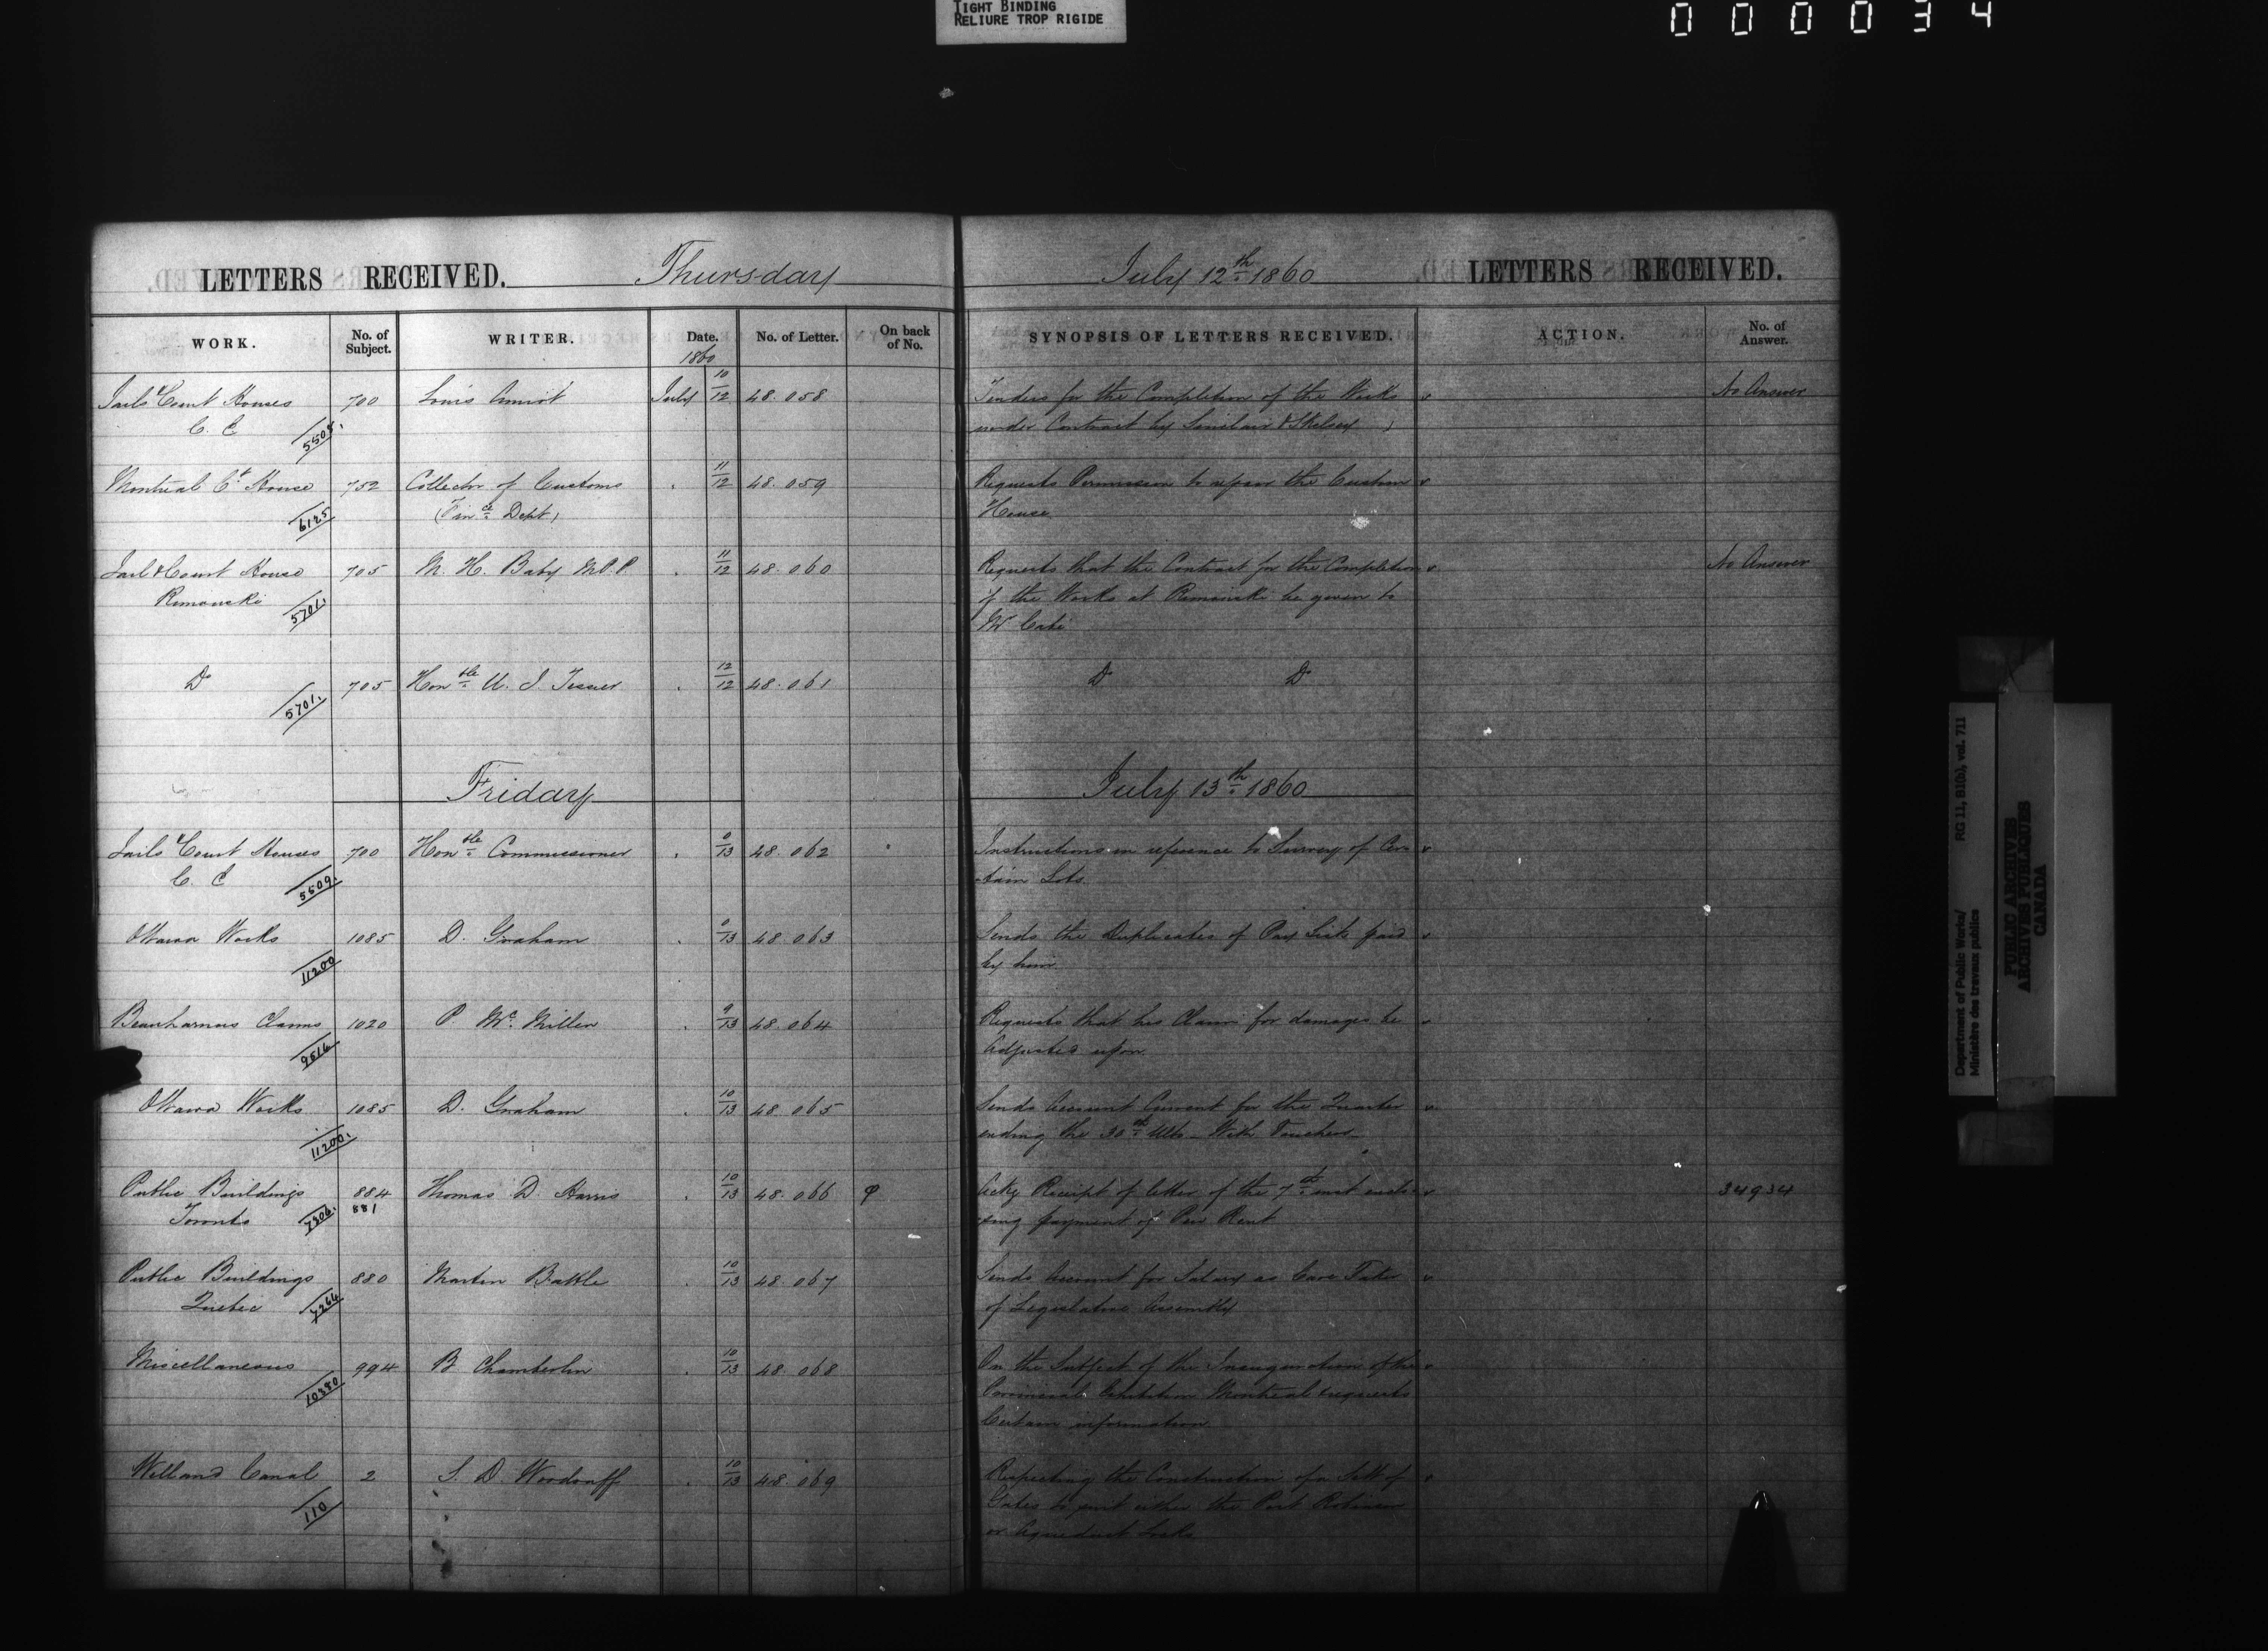 TIGHT BINDING
RELIURE TROP RIGIDE
000034
LETTERS RECEIVED. Thursday July 12th 1860 LETTERS RECEIVED.
WORK. No. of Subject. WRITER. Date. No. of Letter. On back of No. SYNOPSIS OF LETTERS RECEIVED. ACTION. No. of Answer.
1860
Jails & Court Houses 700 Louis Amiot July 10/12 48.058 Tenders for the Completion of the Works No Answer
C. E 5509. under Contract by Sinclair & Skelsey
Montreal Ct House 752 Collector of Customs . 11/12 48.059 Requests Permission to repair the Custom
6125 (Fince Dept) House
Jail & Court House 705 M. H. Baby M.P.P. . 11/12 48.060 Requests that the Contract for the Completion No Answer
Rimouski 5701. of the Works at Rimouski be given to
Mr
Do 705 Honble U. J. Tessier . 12/12 48.061 Do Do
5701.
Friday July 13th 1860
Jails & Court Houses 700 Honble Commissioner . 0/13 48.062 Instructions in reference to Survey of Cer
C. E 5509. -tain Lots
Ottawa Works 1085 D. Graham . 0/13 48.063 Sends the Duplicates of Pay Lists paid
11200 by him
Beauharnois Claims 1020 P McMillen . 9/13 48.064 Requests that his Claim for damages be
9516 Adjusted upon
Ottawa Works 1085 D. Graham . 10/13 48.065 Sends Account Current for the Quarter
11200. ending the 30th Ulto With Vouchers
Public Buildings 884 Thomas D Harris . 10/13 48.066 Ackg Receipt of letter of the 7th inst enclo- 34934
Toronto 7306. 881 sing payment of Pew Rent
Public Buildings 880 Martin Battle . 10/13 48.067 Sends Account for Salary as Care Taker
Quebec 7264 of Legislative Assembly
Miscellaneous 994 B Chamberlin . 10/13 48.068 On the Subject of the Inauguration of the
10380 Exhibition Montreal & requests
Certain information
Welland Canal 2 S. D. Woodruff . 10/13 48.069 Respecting the Construction of a Sett of
110 Gates to suit either the Port Robinson
or Aqueduct Locks
Department of Public Works/ RG 11, B1(b), vol. 711
Ministère des travaux publics
PUBLIC ARCHIVES
ARCHIVES PUBLIQUES
CANADA